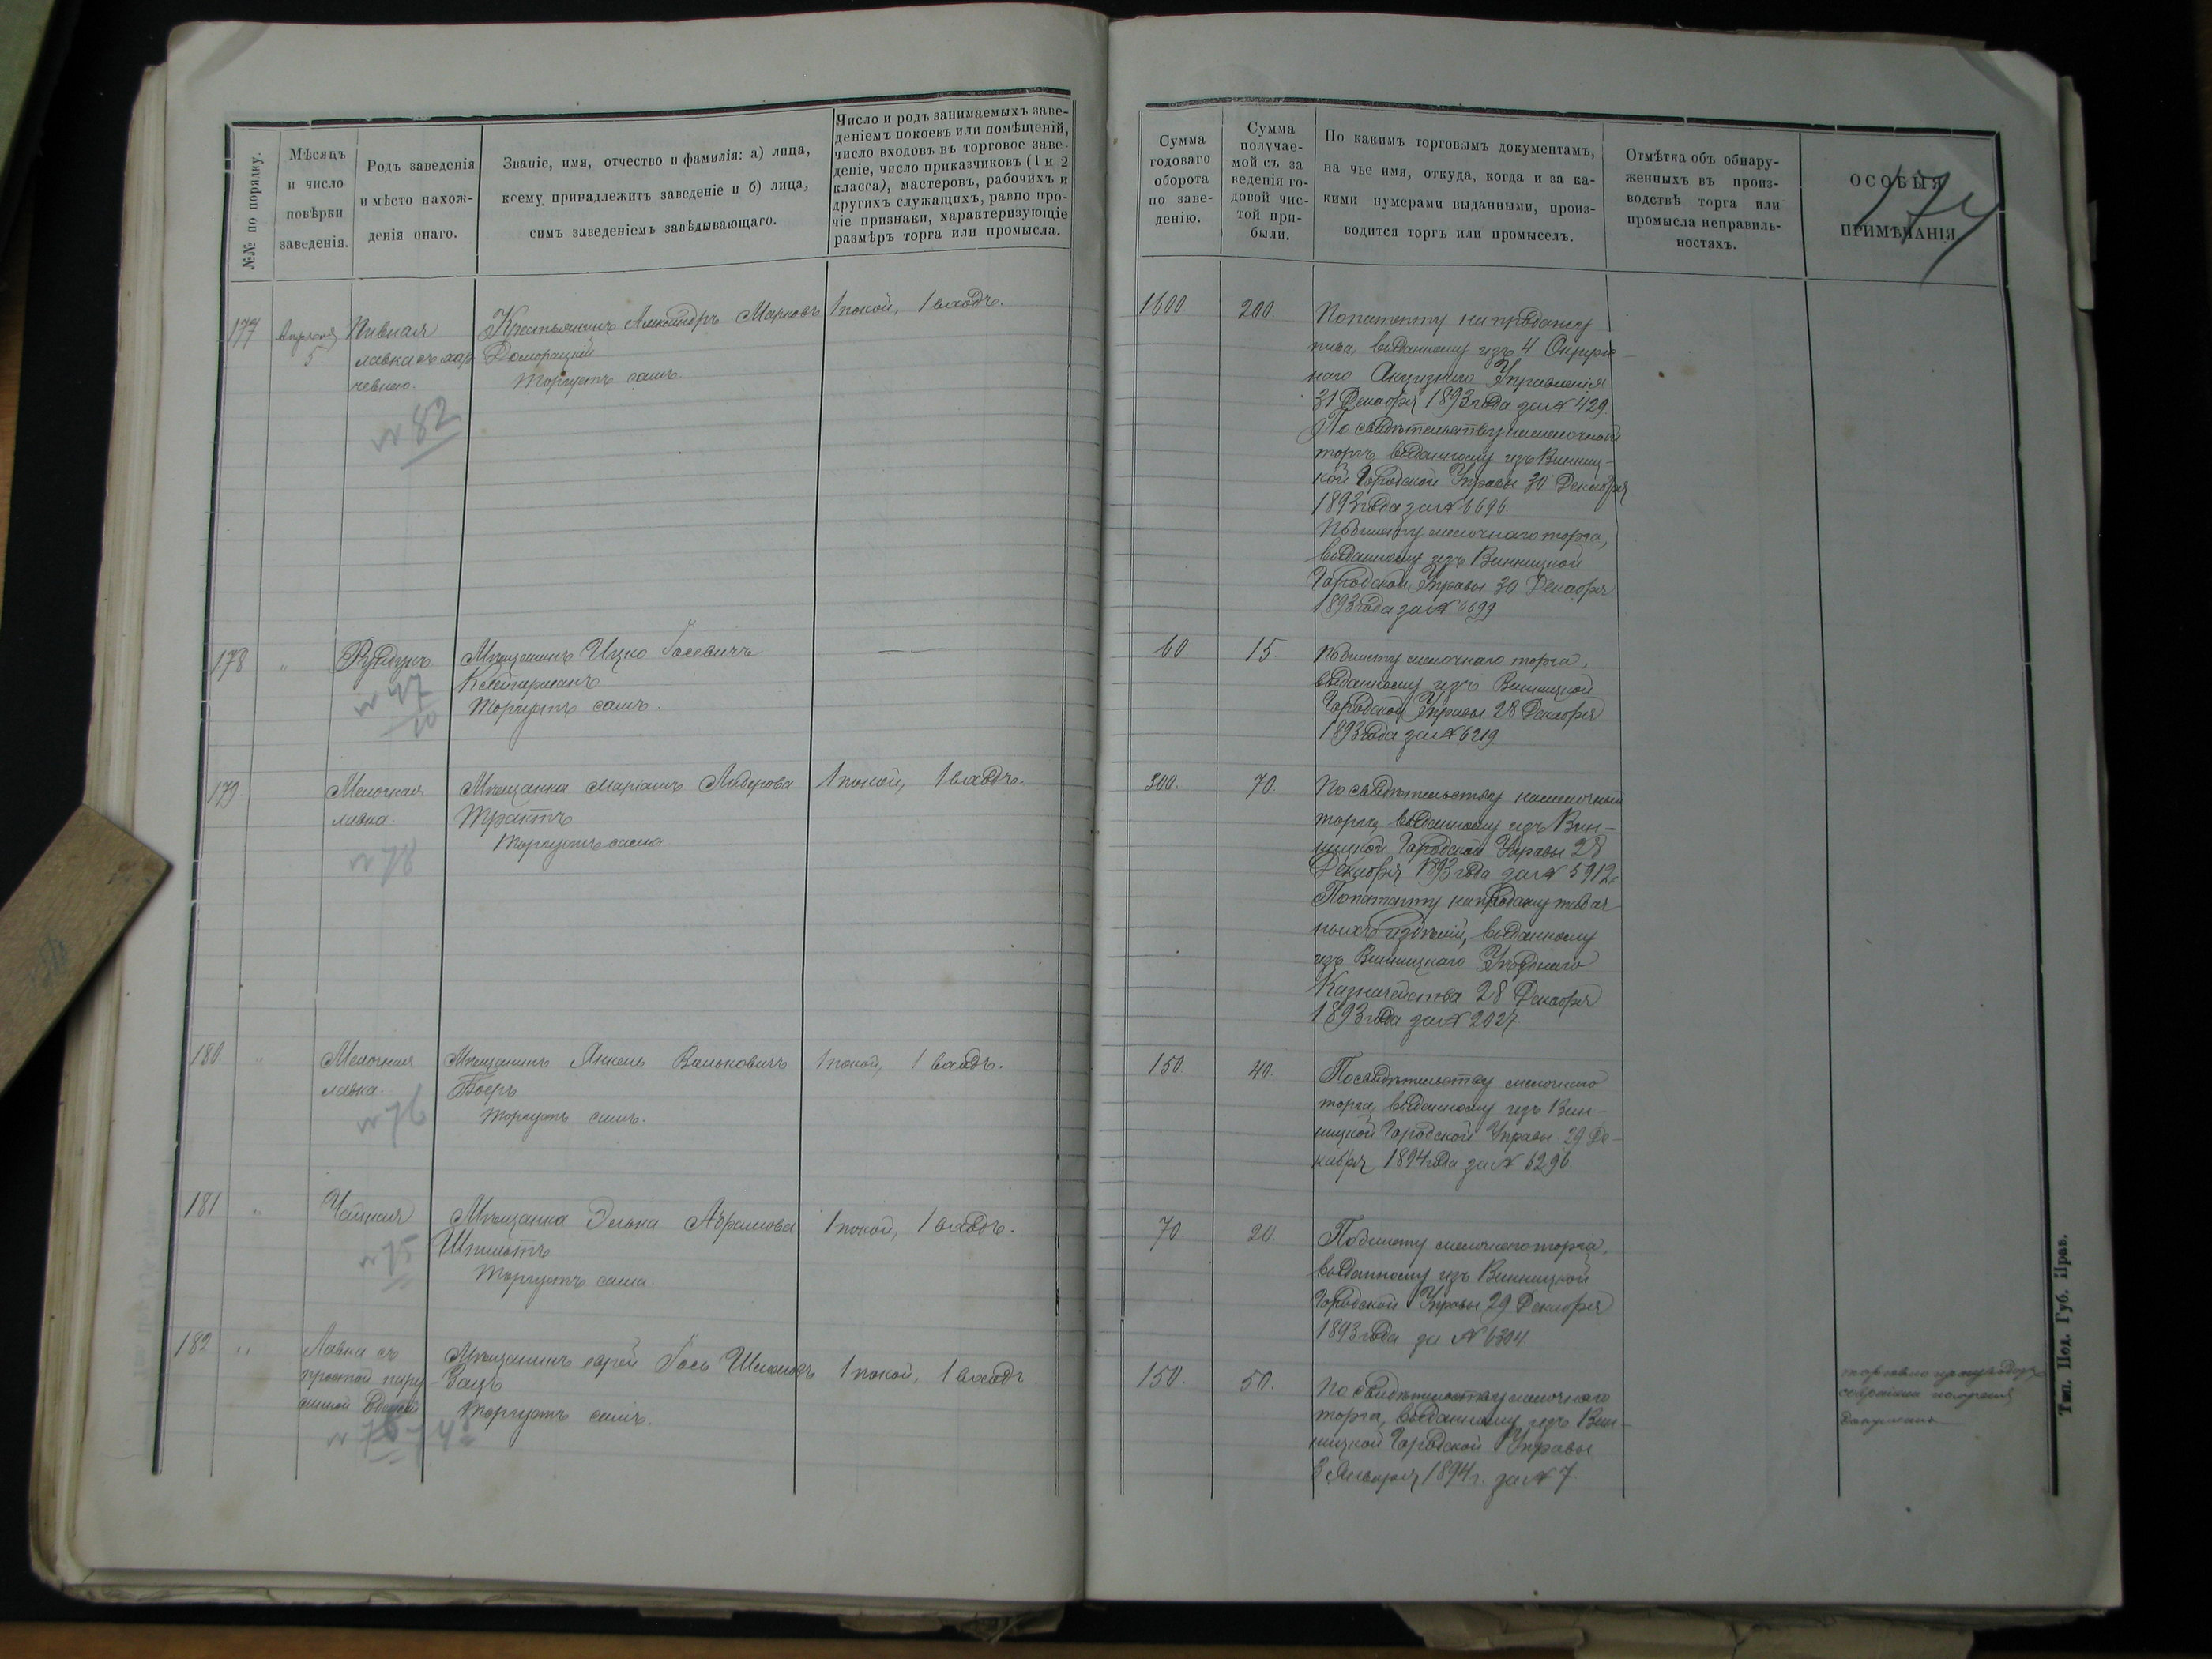 №№ по порядку.
Мѣсяцъ
и число
повѣрки
заведенія.
Родъ заведенія
и мѣсто нахож-
денія онаго.
Званіе, имя, отчество и фамилія: а) лица,
коему принадлежитъ заведеніе и б) лица,
симъ заведеніемъ завѣдывающаго.
Число и родъ занимаемыхъ заве-
деніемъ покоевъ или помѣщеній,
число входовъ въ торговое заве-
деніе, число приказчиковъ (1 и 2
класса), мастеровъ, рабочихъ и
другихъ служащихъ, равно про-
чіе признаки, характеризующіе
размѣръ торга или промысла.
Сумма
годоваго
оборота
по заве-
денію.
Сумма
получае-
мой съ за
веденія го-
довой чис-
той при-
были.
По какимъ торговымъ документамъ,
на чье имя, откуда, когда и за ка-
кими нумерами выданными, произ-
водится торгъ или промыселъ.
Отмѣтка объ обнару-
женныхъ въ произ-
водствѣ торга или
промысла неправиль-
ностяхъ.
ОСОБЫЯ
ПРИМѢЧАНІЯ.
174
177
Апрѣля
5
Пивная
лавка съ хар
чевнею.
№ 82
Крестьянинъ Александръ Марковъ
Доморацкій
Торгуетъ самъ.
1 покой, 1 входъ.
1600. 200.
По патенту на продажу
пива, выданному изъ 4 Окруж
наго Акцизнаго Управленія
31 Декабря 1893 года за № 429
По свидѣтельству на мелочной
торгъ, выданному изъ Винниц-
кой Городской Управы 30 Декабря
1893 года за № 6696.
По билету мелочнаго торга,
выданному изъ Винницкой
Городской Управы 30 Декабря
1893 года за № 6699
178 "
Рундукъ.
№ 47
Мѣщанинъ Ицко Іосевичъ
Торгуетъ самъ.
60 15.
По билету мелочнаго торга,
выданному изъ Винницкой
Городской Управы 28 Декабря
1893 года за № 6219
179
Мелочная
лавка.
№ 78
Мѣщанка Лидерова
Трактъ
Торгуетъ сама
1 покой, 1 входъ.
300. 70.
По свидѣтельству на мелочный
торгъ, выданному изъ Вин-
ницкой Городской Управы 28
Декабря 1893 года за № 5912.
По патенту на продажу табач
ныхъ издѣлій, выданному
изъ Винницкаго Уѣзднаго
Казначейства 28 Декабря
1893 года за № 2027
180 "
Мелочная
лавка.
№ 76
Мѣщанинъ Янкель Вольковичъ
Боеръ
Торгуетъ самъ.
1 покой, 1 входъ.
150 40.
По свидѣтельству мелочнаго
торга, выданному изъ Вин-
ницкой Городской Управы 29 Де-
кабря 1894 года за № 6296.
181 "
Чайная
№ 75
Мѣщанка Элька Абрамова
Торгуетъ сама.
1 покой, 1 входъ.
70 20.
По билету мелочнаго торга,
выданному изъ Винницкой
Городской Управы 29 Декабря
1893 года за № 6304
182 "
Лавка съ
простой
Мѣщанинъ Іось
Зацъ
Торгуетъ самъ.
1 покой, 1 входъ.
150. 50.
По свидѣтельству мелочнаго
торга, выданному изъ Вин-
ницкой Городской Управы
3 Января 1894 г. за № 7.
Тип. Под. Губ. Прав.